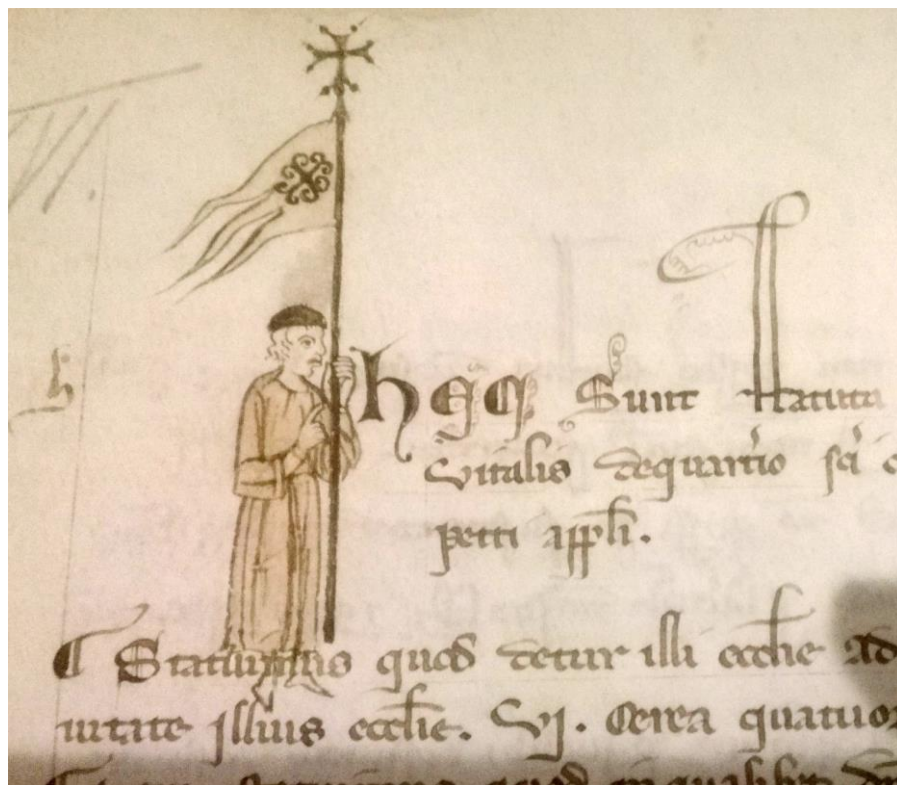 h
hec Sunt Statuta
vitalis dequartio sci
petri appli.
Statuimus quod detur illi ecclie ad
uitate illius ecclie. vj. Cerea quatuor
quod